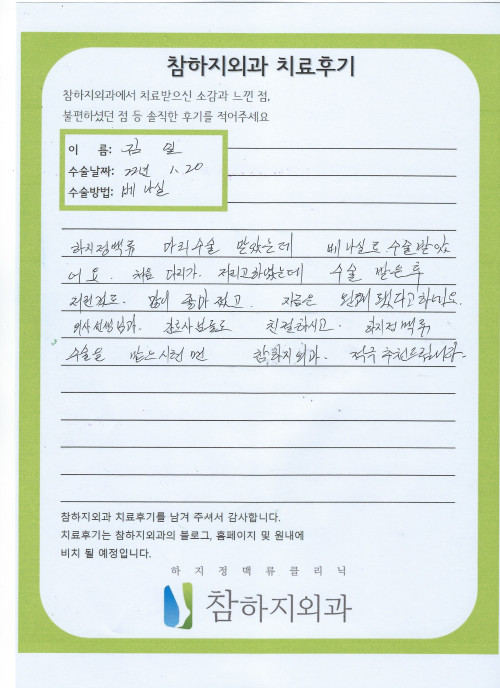 참하지외과 치료후기
참하지외과에서 치료받으신 소감과 느낀 점,
불편하셨던 점 등 솔직한 후기를 적어주세요
이 름: 김 일
수술날짜: 22년 1. 20
수술방법: 베나실
하지정맥류 다리수술 받았는데 베나실로 수술받았
어요. 처음 다리가 저리고하였는데 수술 받은후
저린것도 많이 좋아졌고 지금은 완쾌 됐다고하네요.
의사선생님과 간호사분들도 친절하시고 하지정맥류
수술을 받으시려면 참하지외과 적극 추천드립니다.
참하지외과 치료후기를 남겨 주셔서 감사합니다.
치료후기는 참하지외과의 블로그, 홈페이지 및 원내에
비치 될 예정입니다.
하지정맥류클리닉
참하지외과